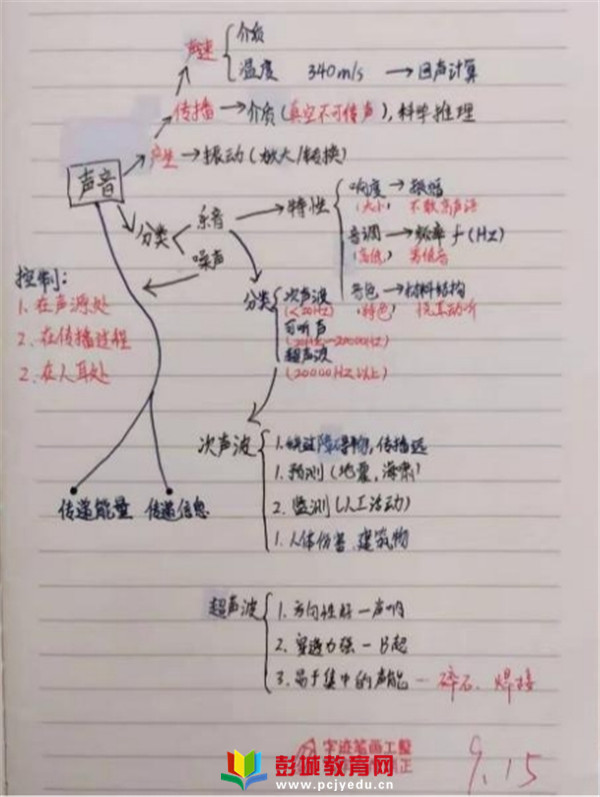 声速
介质
温度 340m/s → 回声计算
传播 → 介质(真空不可传声),科学推理
产生 → 振动(放大/转换)
声音
分类
乐音 → 特性
噪声
响度 → 振幅
(大小) 不敢高声语
音调 → 频率 f(HZ)
(高低) 高低音
音色 → 材料结构
(特色) 悦耳动听
控制:
1. 在声源处
2. 在传播过程
2. 在人耳处
分类
次声波
(<20HZ)
可听声
(20HZ-20000HZ)
超声波
(20000HZ以上)
次声波
1. 绕过障碍物,传播远
1. 预测(地震,海啸)
2. 监测(人工活动)
1. 人体伤害 建筑物
传递能量 传递信息
超声波
1. 方向性好 — 声呐
2. 穿透力强 — B超
3. 易于集中的声能 — 碎石、焊接
字迹笔画工整
正
9.15
彭城教育网
www.pcjyedu.cn